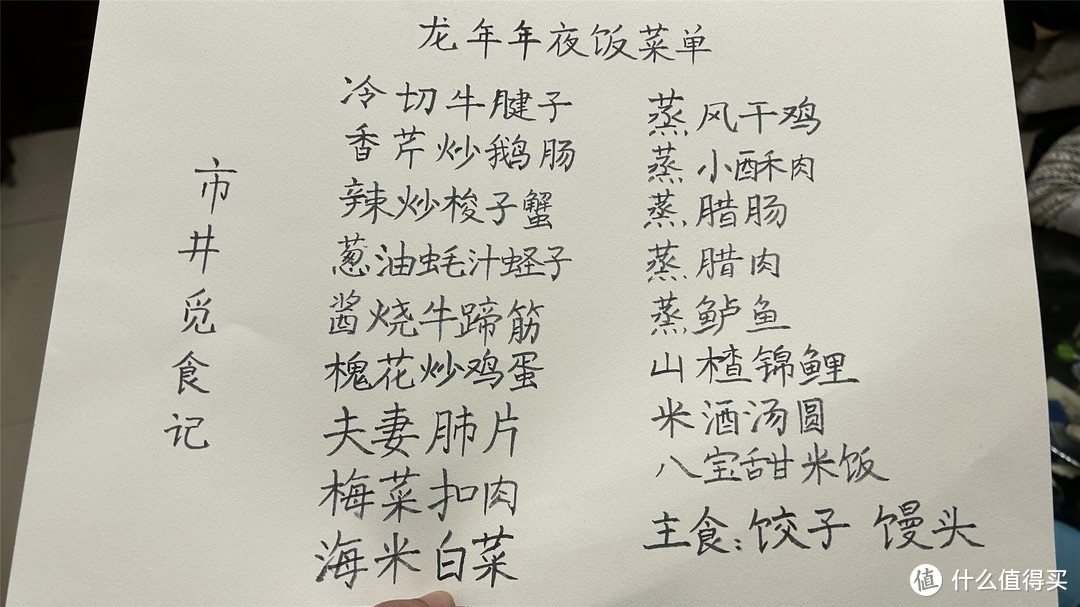 龙年年夜饭菜单
市井觅食记
冷切牛腱子
香芹炒鹅肠
辣炒梭子蟹
葱油蚝汁蛏子
酱烧牛蹄筋
槐花炒鸡蛋
夫妻肺片
梅菜扣肉
海米白菜
蒸风干鸡
蒸小酥肉
蒸腊肠
蒸腊肉
蒸鲈鱼
山楂锦鲤
米酒汤圆
八宝甜米饭
主食:饺子 馒头
值 什么值得买